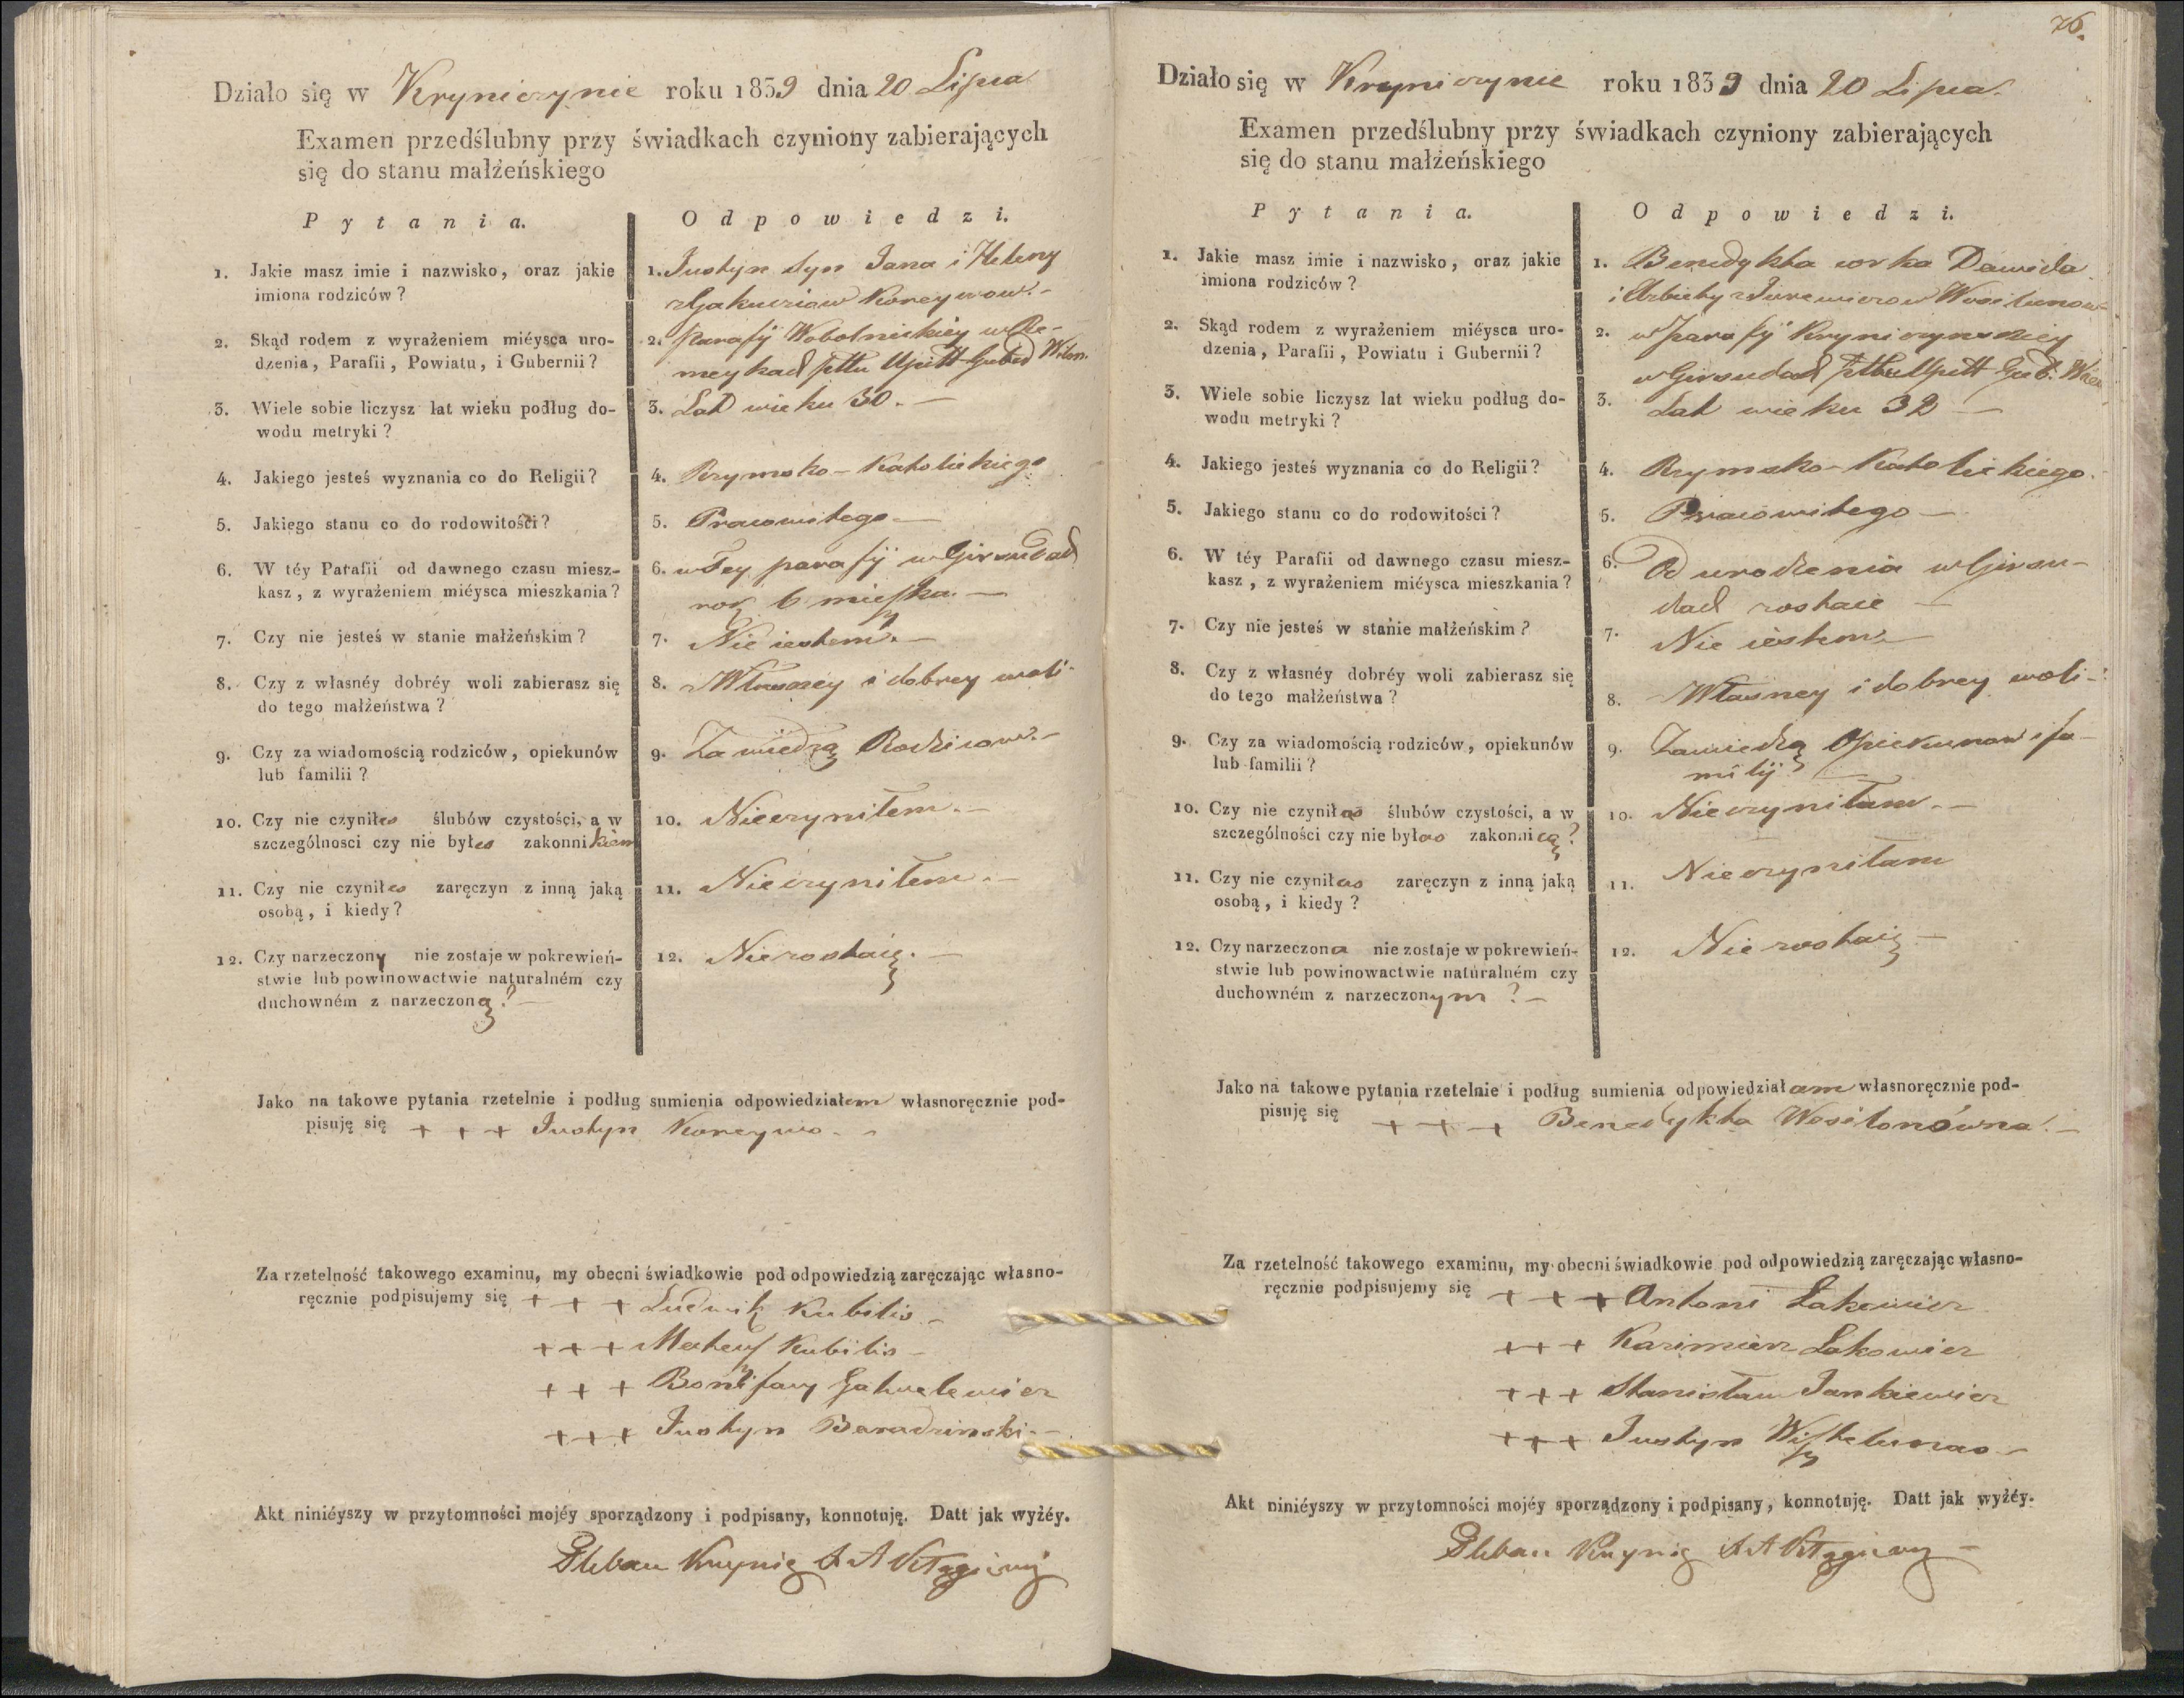 Działo się w Kryniczynie roku 1839 dnia 20 Lipca
Examen przedślubny przy świadkach czyniony zabierających
się do stanu małżeńskiego
Pytania.
Odpowiedzi.
1. Jakie masz imie i nazwisko, oraz jakie
imiona rodziców?
1. Justyn syn Jana i Heleny
2. Skąd rodem z wyrażeniem miéysca uro-
dzenia, Parafii, Powiatu, i Gubernii?
2. parafij Wobolnickiey w Re-
meykach pttu Upitt Gub Wilen.
3. Wiele sobie liczysz lat wieku podług do-
wodu metryki?
3. Lat wieku 30. —
4. Jakiego jesteś wyznania co do Religii?
4. Rzymsko-Katolickiego
5. Jakiego stanu co do rodowitości?
5. Pracowitego —
6. W téy Parafii od dawnego czasu miesz-
kasz, z wyrażeniem miéysca mieszkania?
6. w Tey parafij w Girsudach
rok 6 mieszka. —
7. Czy nie jesteś w stanie małżeńskim?
7. Nie iestem. —
8. Czy z własnéy dobréy woli zabierasz się
do tego małżeństwa?
8. z Własney i dobrey woli -
9. Czy za wiadomością rodziców, opiekunów
lub familii?
9. Za wiedzą Rodzicow. -
10. Czy nie czyniłes ślubów czystości, a w
szczególnosci czy nie byłes zakonnikiem
10. Nieczyniłem. —
11. Czy nie czyniłes zaręczyn z inną jaką
osobą, i kiedy?
11. Nieczyniłem. —
12. Czy narzeczony nie zostaje w pokrewień-
stwie lub powinowactwie naturalném czy
duchowném z narzeczoną? —
12. Niezostaię. —
Jako na takowe pytania rzetelnie i podług sumienia odpowiedziałem własnoręcznie pod-
pisuję się + + + Justyn Korcywo. -
Za rzetelność takowego examinu, my obecni świadkowie pod odpowiedzią zaręczając własno-
ręcznie podpisujemy się + + + Ludwik Kubilis -
+ + + Mateusz Kubilis -
+ + + Bonifacy
+ + + Justyn Baradzinski. -
Akt niniéyszy w przytomności mojéy sporządzony i podpisany, konnotuję. Datt jak wyżéy.
Pleban
76.
Działo się w Kryniczynie roku 1839 dnia 20 Lipca.
Examen przedślubny przy świadkach czyniony zabierających
się do stanu małżeńskiego
Pytania.
Odpowiedzi.
1. Jakie masz imie i nazwisko, oraz jakie
imiona rodziców?
1. Benedykta corka Dawida
2. Skąd rodem z wyrażeniem miéysca uro-
dzenia, Parafii, Powiatu i Gubernii?
2. w parafij Kryniczynskiey
w Girsudach pttu Upitt Gub. Wilen
3. Wiele sobie liczysz lat wieku podług do-
wodu metryki?
3. Lat wieku 32 —
4. Jakiego jesteś wyznania co do Religii?
4. Rzymsko-Katolickiego.
5. Jakiego stanu co do rodowitości?
5. Pracowitego —
6. W téy Parafii od dawnego czasu miesz-
kasz, z wyrażeniem miéysca mieszkania?
6. Od urodzenia w Girsu-
dach zostaie —
7. Czy nie jesteś w stanie małżeńskim?
7. Nie iestem —
8. Czy z własnéy dobréy woli zabierasz się
do tego małżeństwa?
8. z Własney i dobrey woli -
9. Czy za wiadomością rodziców, opiekunów
lub familii?
9. Zawiedzą Opiekunow i fa-
milij —
10. Czy nie czyniłas ślubów czystości, a w
szczególności czy nie byłas zakonnicą?
10. Nieczyniłam. —
11. Czy nie czyniłas zaręczyn z inną jaką
osobą, i kiedy?
11. Nieczyniłam
12. Czy narzeczona nie zostaje w pokrewień-
stwie lub powinowactwie naturalném czy
duchowném z narzeczonym? —
12. Nie zostaię —
Jako na takowe pytania rzetelnie i podług sumienia odpowiedziałam własnoręcznie pod-
pisuję się + + + Benedykta Wositonówna. —
Za rzetelność takowego examinu, my obecni świadkowie pod odpowiedzią zaręczając własno-
ręcznie podpisujemy się + + + Antoni Łakewicz
+ + + Kazimierz Łakowicz
+ + + Stanisław Jankiewicz
+ + + Justyn
Akt niniéyszy w przytomności mojéy sporządzony i podpisany, konnotuję. Datt jak wyżéy.
Pleban